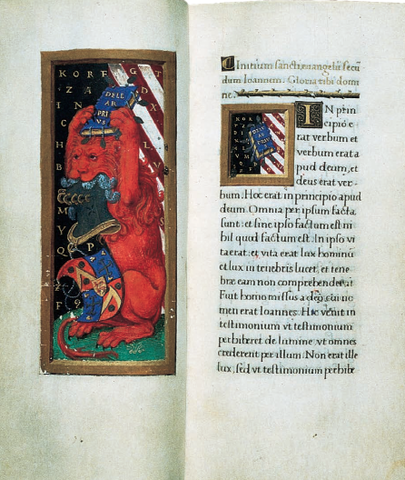 DELL
AR
PRI
Initium sancti evangelii secu
dum Ioannem. Gloria tibi domi
ne.
IN prin
cipio e
rat verbum et
verbum erat a
pud deum, et
deus erat ver-
bum. Hoc erat in principio apud
deum. Omnia per ipsum facta
sunt: et sine ipso factum est ni
hil quod factum est. In ipso vi
ta erat, et vita erat lux hominũ
et lux in tenebris lucet, et tene
brae eam non comprehenderũt
Fuit homo missus a deo, cui no
men erat Ioannes. Hic venit in
testimonium ut testimonium
perhiberet de lumine, ut omnes
crederent per illum. Non erat ille
lux, sed ut testimonium perhibe